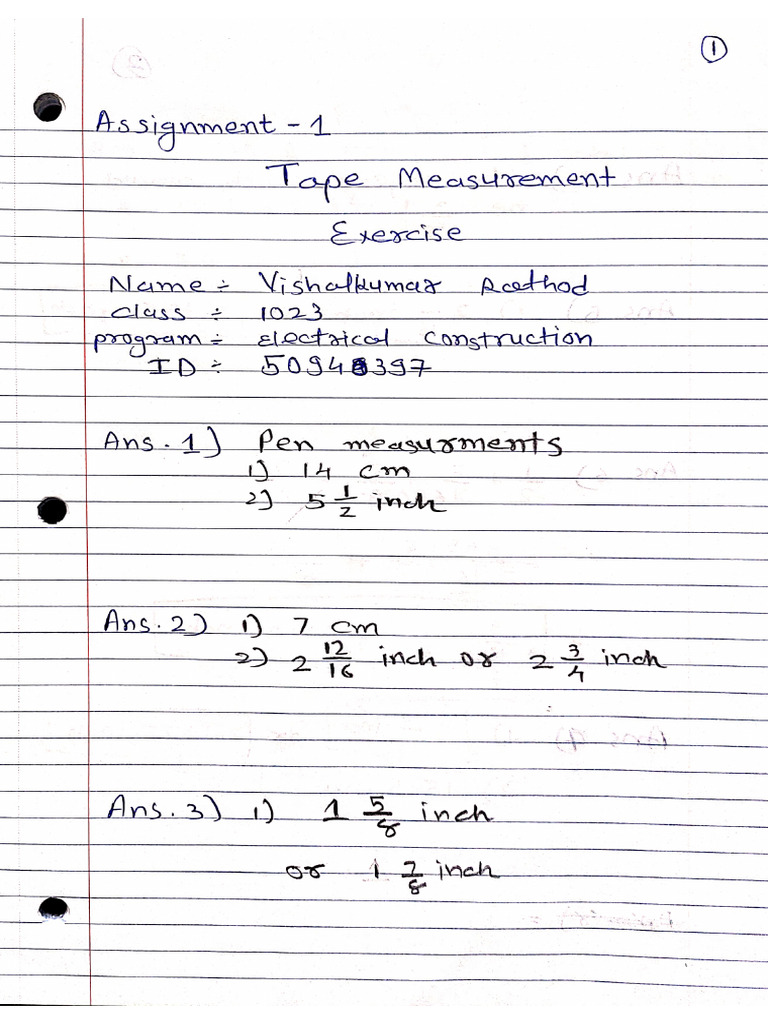 ①
Assignment - 1
Tape Measurement
Exercise
Name ÷ Vishalkumar Rathod
Class ÷ 1023
program ÷ Electrical Construction
ID ÷ 50948397
Ans. 1) Pen measurments
1) 14 cm
2) 5 1/2 inch
Ans. 2) 1) 7 cm
2) 2 12/16 inch or 2 3/4 inch
Ans. 3) 1) 1 5/8 inch
or 1 7/8 inch